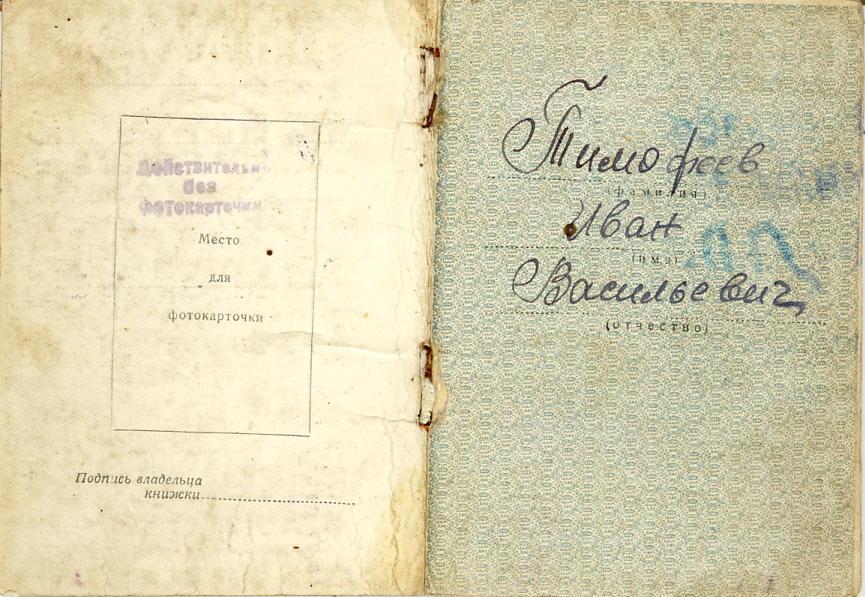 Действительн
без
фотокарточки
Место
для
фотокарточки
Подпись владельца
книжки
Тимофеев
(фамилия)
Иван
(имя)
Васильевич
(отчество)